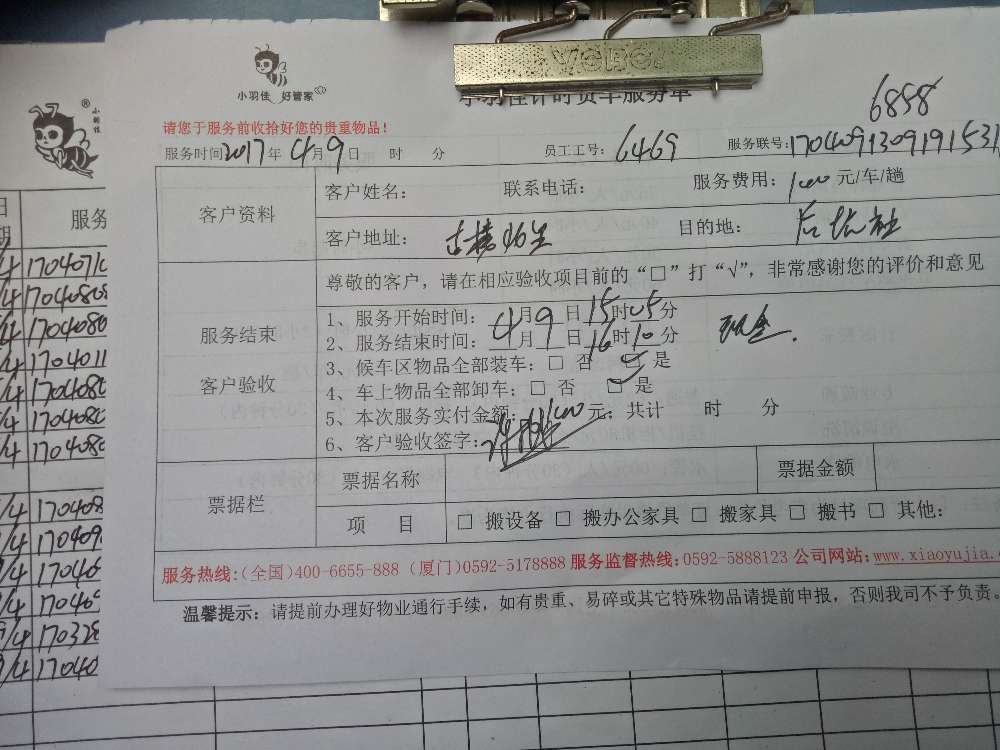 VCBC
小羽佳 好管家
小羽佳计时货车服务单
6858
请您于服务前收拾好您的贵重物品!
服务时间2017年4月9日 时 分 员工工号:6469 服务联号:170409130919153
客户资料
客户姓名: 联系电话: 服务费用:100元/车/趟
客户地址: 目的地:后坑社
尊敬的客户，请在相应验收项目前的“□”打“√”，非常感谢您的评价和意见
服务结束
客户验收
1、服务开始时间:4月9日15时05分
2、服务结束时间:4月9日16时10分 现金.
3、候车区物品全部装车:□ 否 ☑ 是
4、车上物品全部卸车:□ 否 ☑ 是
5、本次服务实付金额:100元；共计 时 分
6、客户验收签字:
票据栏
票据名称 票据金额
项 目 □ 搬设备 □ 搬办公家具 □ 搬家具 □ 搬书 □ 其他:
服务热线:(全国)400-6655-888 (厦门)0592-5178888 服务监督热线:0592-5888123 公司网站:www.xiaoyujia.
温馨提示：请提前办理好物业通行手续，如有贵重、易碎或其它特殊物品请提前申报，否则我司不予负责。
小羽佳
®
日期
服务
/4 170407
/4 170408
/4 170408
/4 170401
/4 170408
/4 170408
/4 170408
/4 170408
/4 170409
/4 17040
/4 17040
/4 170328
/4 17040